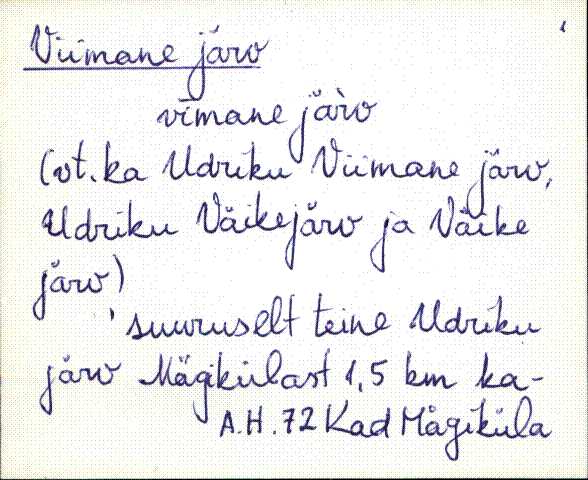 Viimane järv
vīmane jäŕv
(vt. ka Udriku Viimane järv,
Udriku Väikejärv ja Väike
järv)
' suuruselt teine Udriku
järv Mägikülast 1,5 km ka-
A.H. 72 Kad Mägiküla